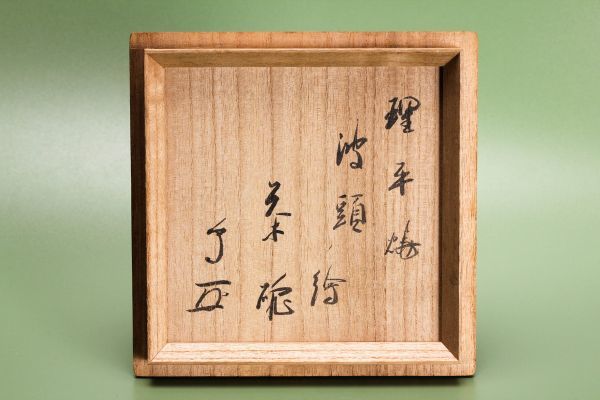 理平焼
波頭ノ絵
茶碗